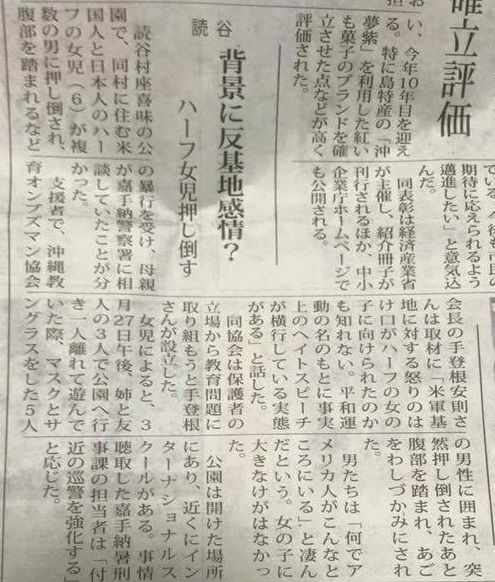 立評価
今年10年目を迎え
る。特に島特産の「沖
夢紫」を利用した紅い
も菓子のブランドを確
立させた点などが高く
評価された。
期待に応えられるよう
邁進したい」と意気込
んだ。
同表彰は経済産業省
が主催し、紹介冊子が
刊行されるほか、中小
企業庁ホームページで
も公開される。
読谷
背景に反基地感情?
ハーフ女児押し倒す
読谷村座喜味の公
園で、同村に住む米
国人と日本人のハー
フの女児(6)が複
数の男に押し倒され、
腹部を踏まれるなど
の暴行を受け、母親
が嘉手納警察署に相
談していたことが分
かった。
支援者で、沖縄教
育オンブズマン協会
会長の手登根安則さ
んは取材に「米軍基
地に対する怒りのは
け口がハーフの女の
子に向けられたのか
も知れない。平和運
動の名のもとに事実
上のヘイトスピーチ
が横行している実態
がある」と話した。
同協会は保護者の
立場から教育問題に
取り組もうと手登根
さんが設立した。
女児によると、3
月27日午後、姉と友
人の3人で公園へ行
き一人離れて遊んで
いた際、マスクとサ
ングラスをした5人
の男性に囲まれ、突
然押し倒されたあと
腹部を踏まれ、あご
をわしづかみにされ
た。
男たちは「何でア
メリカ人がこんなと
ころにいる」と凄ん
だという。女の子に
大きなけがはなかっ
た。
公園は開けた場所
にあり、近くにイン
ターナショナルス
クールがある。事情
聴取した嘉手納署刑
事課の担当者は「付
近の巡警を強化する」
と応じた。